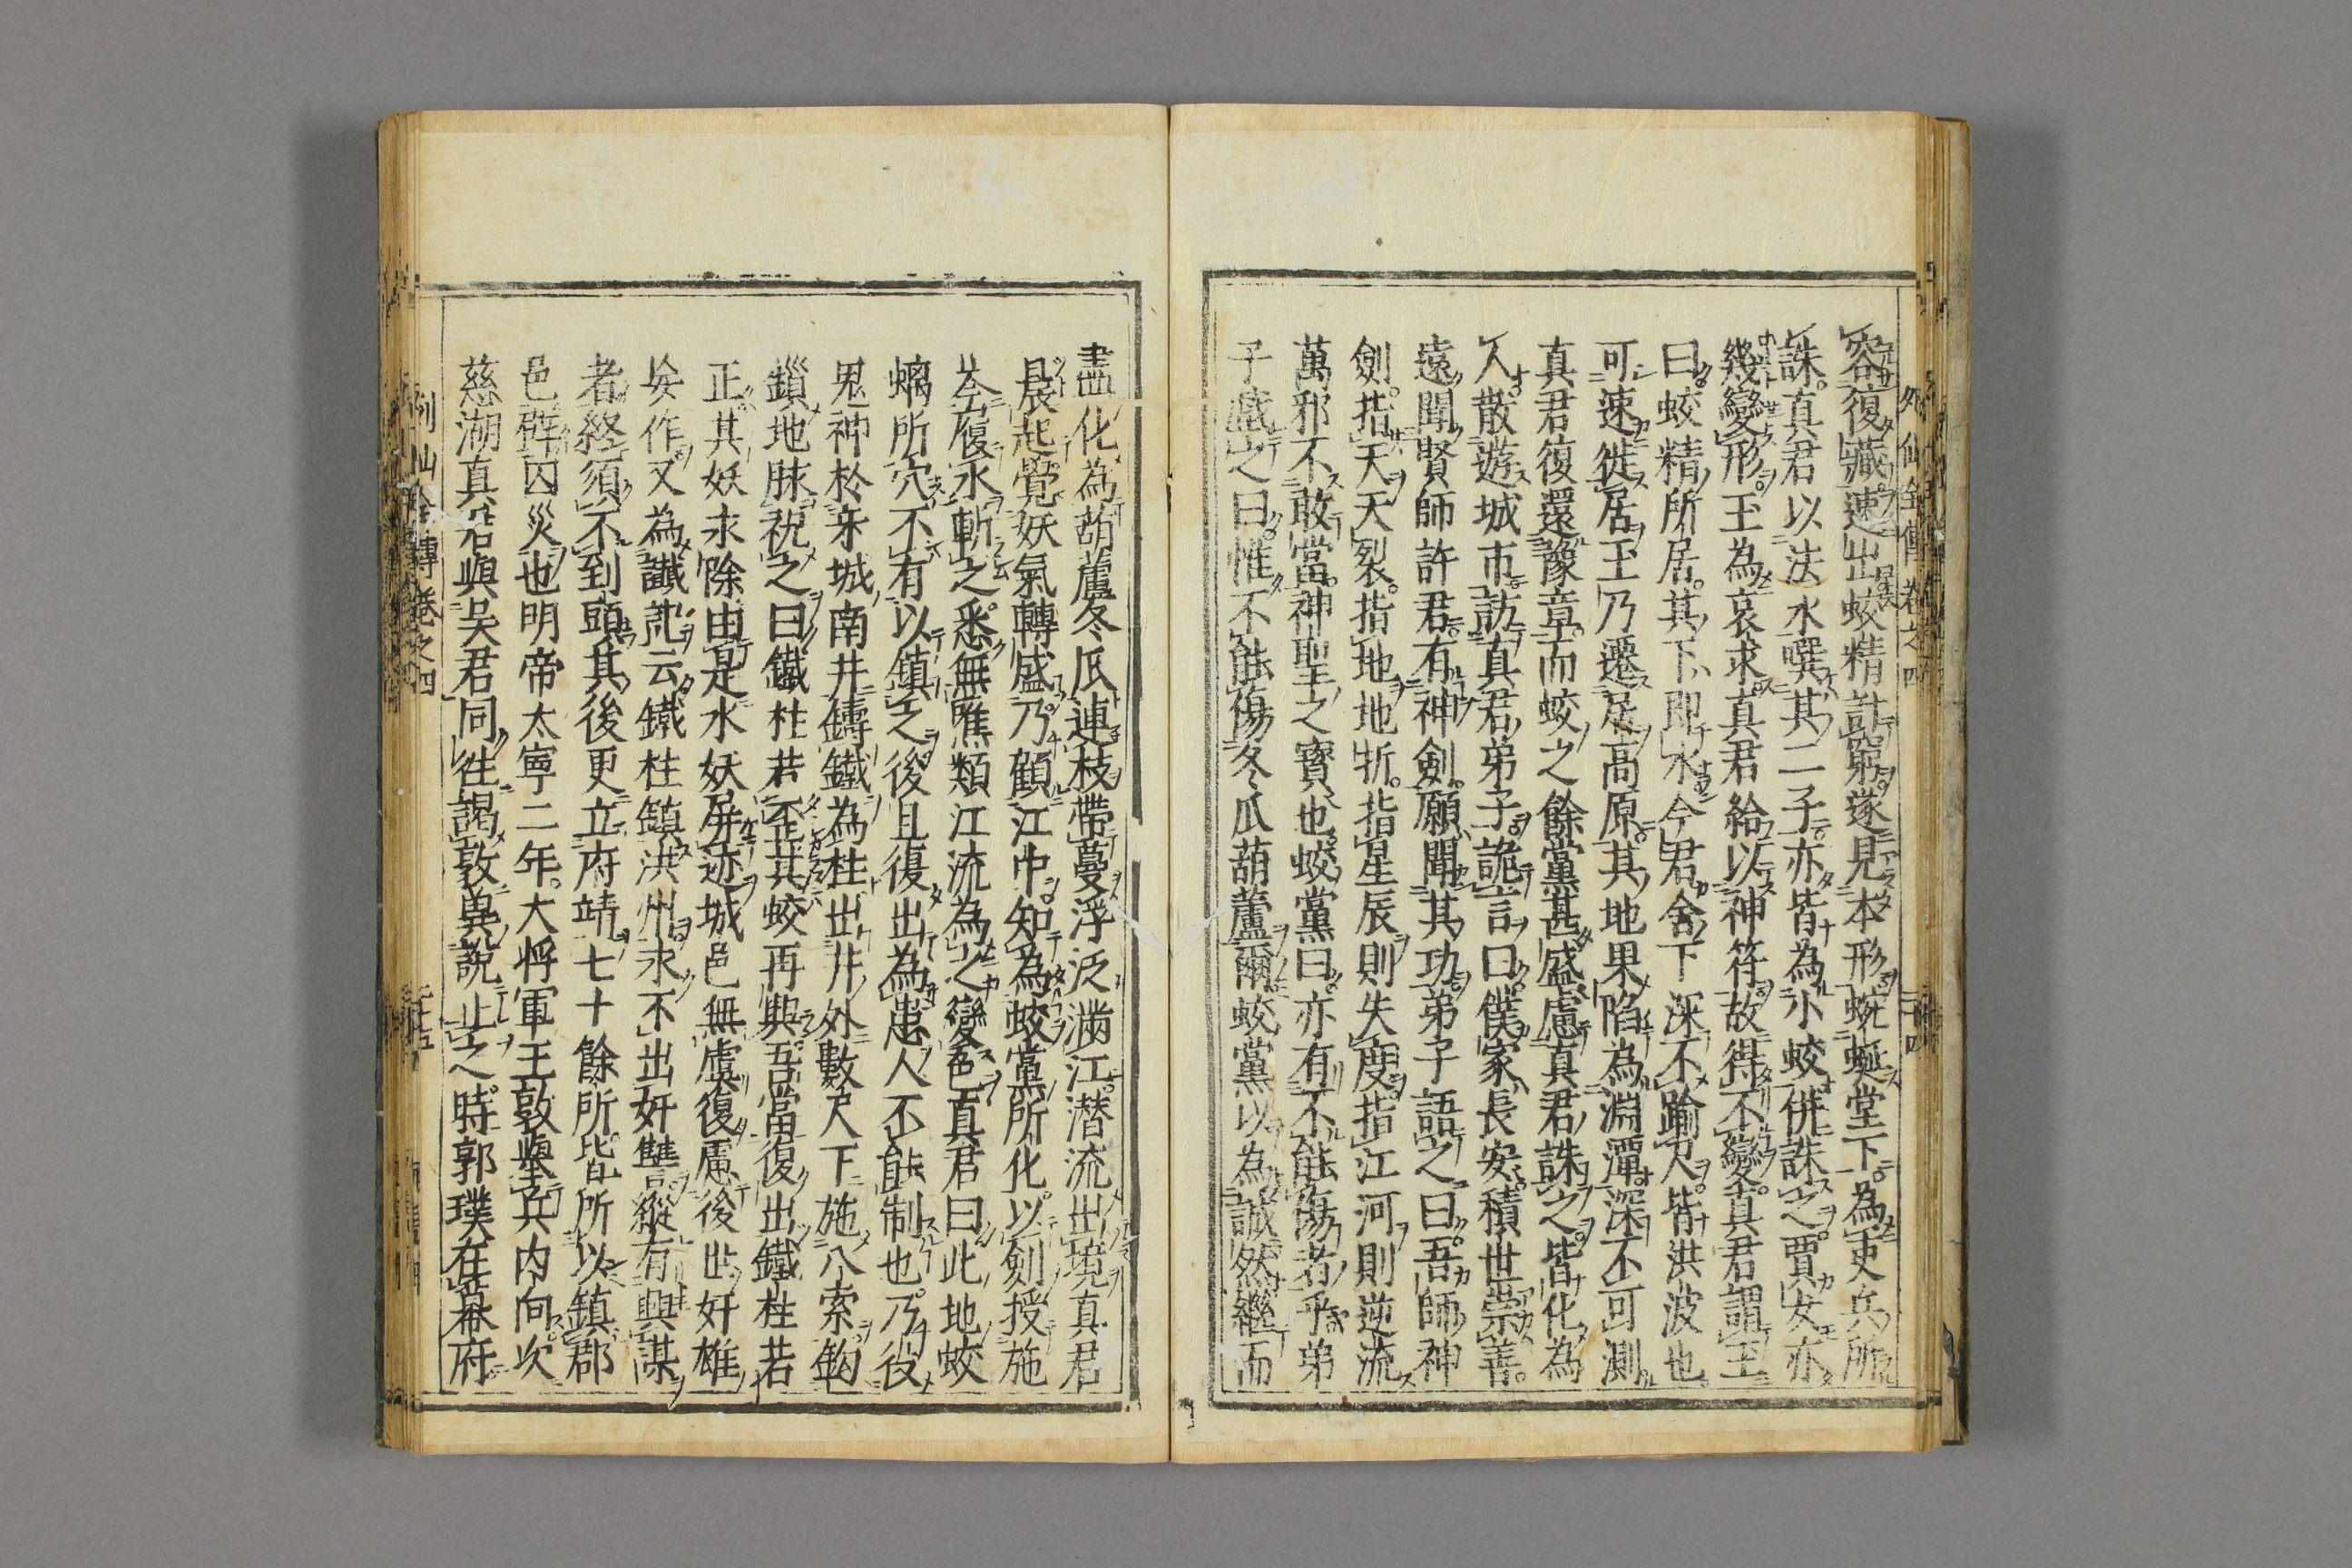 列仙全傳卷之四
二十四
容復藏速出蛟精計窮遂見本形蜿蜒堂下為吏兵所
誅真君以法水噀其二子亦皆為小蛟併誅之賈女亦
幾變形玉為哀求真君給以神符故得不變真君謂玉
曰蛟精所居其下即水今君舍下深不踰尺皆洪波也
可速徙居玉乃遷居高原其地果陷為淵潭深不可測
真君復還豫章而蛟之餘黨甚盛慮真君誅之皆化為
人散遊城市訪真君弟子詭言曰僕家長安積世崇善
遠聞賢師許君有神劍願聞其功弟子語之曰吾師神
劍指天天裂指地地坼指星辰則失度指江河則逆流
萬邪不敢當神聖之寶也蛟黨曰亦有不能傷者乎弟
子戲之曰惟不能傷冬瓜葫蘆爾蛟黨以為誠然繼而
盡化為葫蘆冬瓜連枝帶蔓浮泛滿江潛流出境真君
晨起覺妖氣轉盛乃顧江中知為蛟黨所化以劍授施
岑履水斬之悉無噍類江流為之變色真君曰此地蛟
螭所穴不有以鎮之後且復出為患人不能制也乃役
鬼神於牙城南井鑄鐵為柱出井外數尺下施八索鉤
鎖地脉祝之曰鐵柱若歪其蛟再興吾當復出鐵柱若
正其妖永除由是水妖屏迹城邑無虞復慮後世奸雄
妄作又為讖記云鐵柱鎮洪州永不出奸讐縱有興謀
者終須不到頭其後更立府靖七十餘所皆所以鎮郡
邑辟囚災也明帝太寧二年大將軍王敦舉兵內向次
慈湖真君與吳君同往謁敦兾說止之時郭璞在幕府
列仙全傳卷之四
二十五